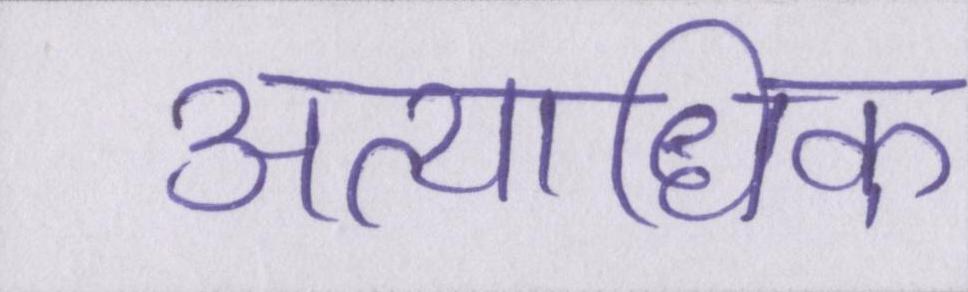 अत्याधिक